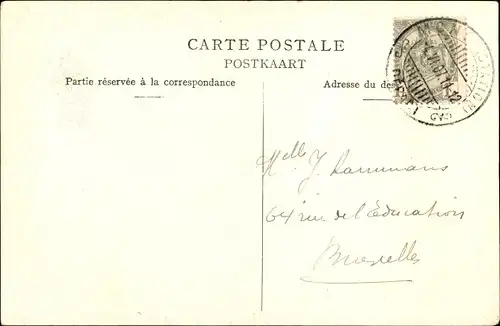 CARTE POSTALE
POSTKAART
Partie réservée à la correspondance
Adresse du des
Melle J.
64 rue de l'Éducation
Bruxelles